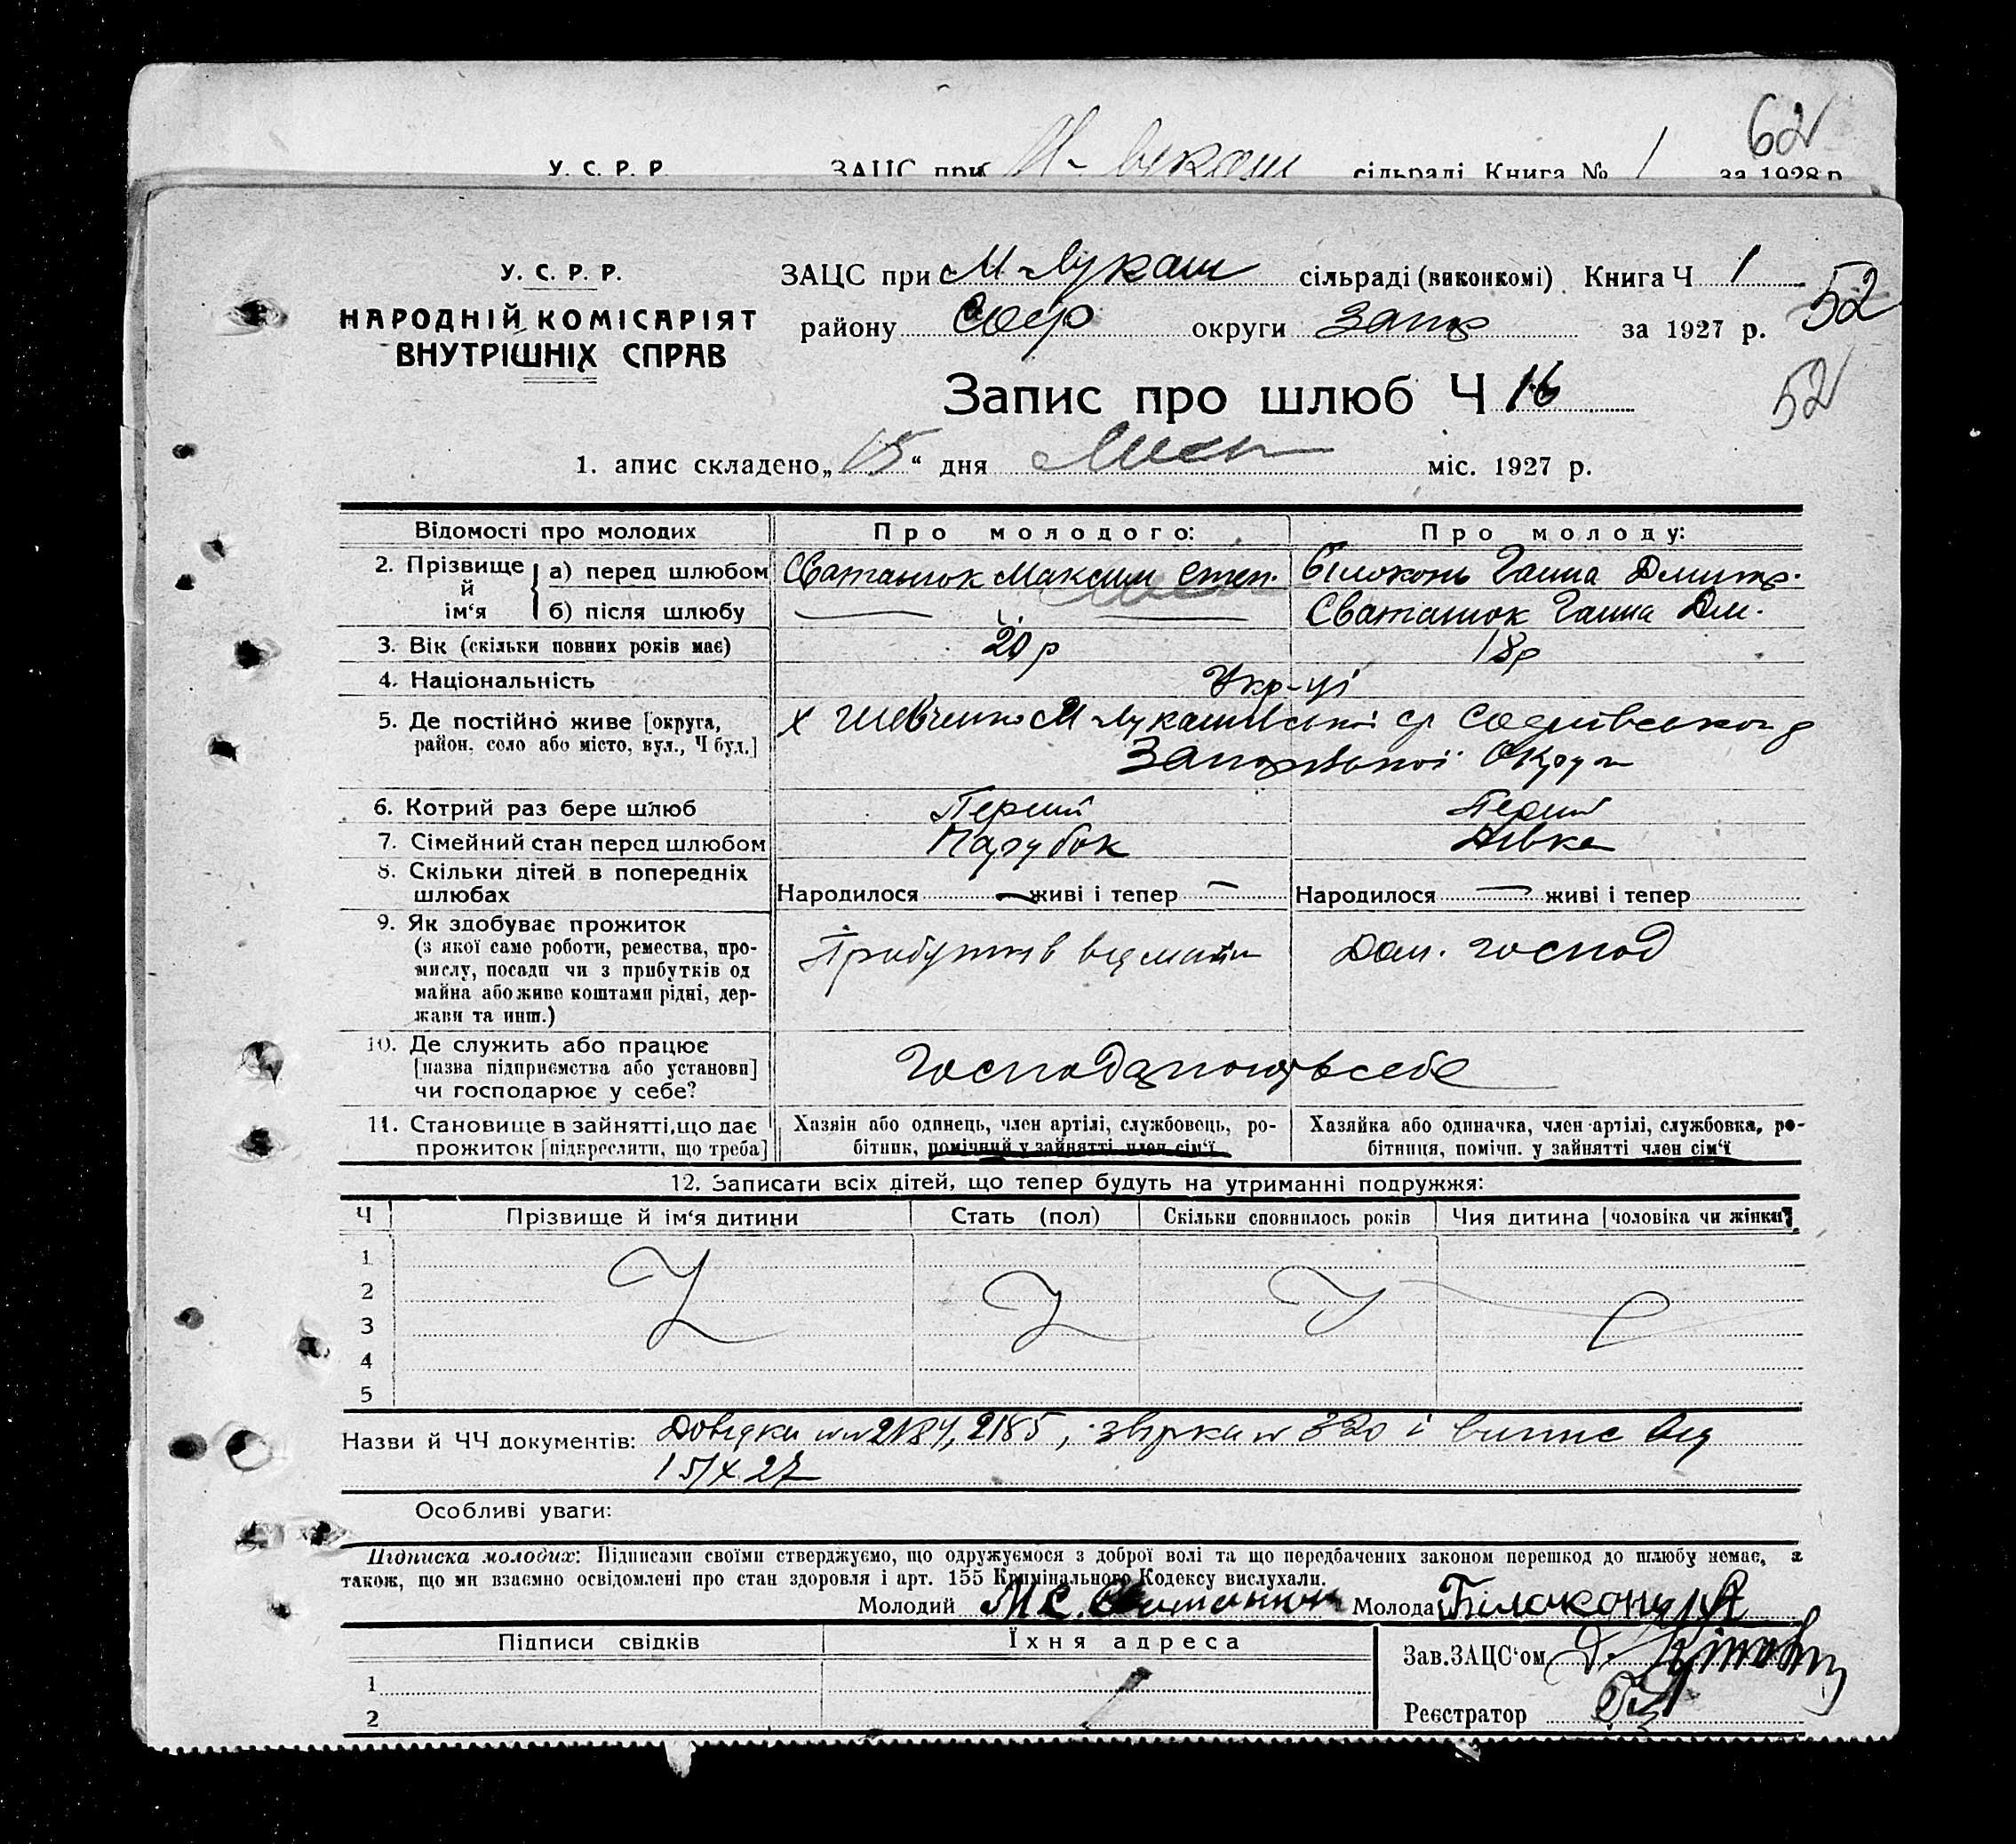 62
У. С. Р. Р. ЗАЦС при сільраді Книга № 1 за 1928 р.
У. С. Р. Р.
НАРОДНІЙ КОМІСАРІЯТ
ВНУТРІШНІХ СПРАВ
ЗАЦС при М-Лукаш сільраді (виконкомі) Книга Ч 1
52
району Соф округи Запор за 1927 р.
Запис про шлюб Ч 16
52
1. апис складено „15“ дня міс. 1927 р.
Відомості про молодих Про молодого: Про молоду:
2. Прізвище й ім‘я а) перед шлюбом Сватанюк Максим Степ. Білоконь Ганна Дмитр.
б) після шлюбу — — Сватанюк Ганна Дм.
3. Вік (скільки повних років має) 20 р 18 р
4. Національність Укр-ці
5. Де постійно живе [округа, х Шевченко М Лукашівської ср Софіївського р
район, село або місто, вул., Ч буд.] Запорізької Округи
6. Котрий раз бере шлюб Перший Перший
7. Сімейний стан перед шлюбом Парубок Дівка
8. Скільки дітей в попередніх
шлюбах Народилося — живі і тепер — Народилося — живі і тепер
9. Як здобуває прожиток
(з якої саме роботи, ремества, про-
мислу, посади чи з прибутків од
майна або живе коштами рідні, дер-
жави та инш.)
Прибутків від майна Дом. господ
10. Де служить або працює
[назва підприємства або установи]
чи господарює у себе?
Господарюють в себе
11. Становище в зайнятті, що дає Хазяїн або одинець, член артілі, службовець, ро- Хазяйка або одиначка, член артілі, службовка, ро-
прожиток [підкреслити, що треба] бітник, помічний у зайнятті член сім‘ї бітниця, помічн. у зайнятті член сім‘ї
12. Записати всіх дітей, що тепер будуть на утриманні подружжя:
Ч Прізвище й ім‘я дитини Стать (пол) Скільки сповнилось років Чия дитина [чоловіка чи жінки]
1
2
3
4
5
Назви й ЧЧ документів: Довідки NN 2184, 2185, звірка N 320 і випис від
15/X 27
Особливі уваги:
Підписка молодих: Підписами своїми стверджуємо, що одружуємося з доброї волі та що передбачених законом перешкод до шлюбу немає, а
також, що ми взаємно освідомлені про стан здоровля і арт. 155 Кримінального Кодексу вислухали.
Молодий М С. Сватанюк Молода Білаконь
Підписи свідків Їхня адреса
Зав. ЗАЦС‘ом
1
Реєстратор
2